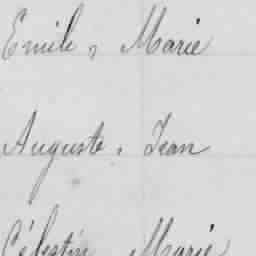 Emile, Marie
Auguste, Jean
Célestin Marie